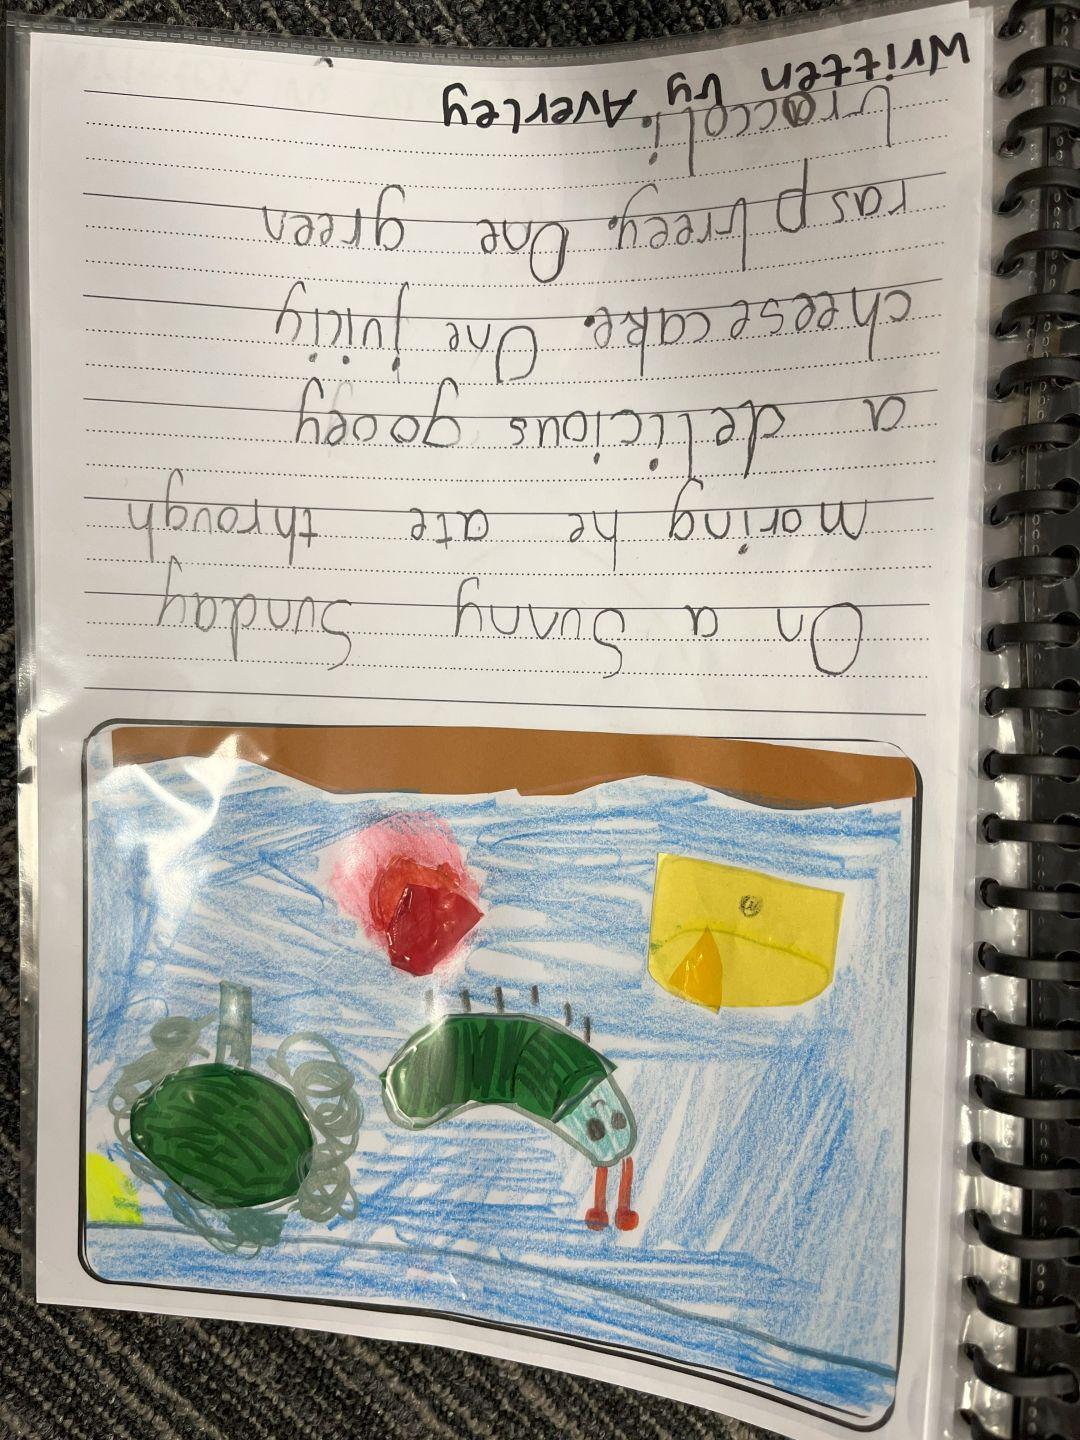 On a Sunny Sunday
moring he ate through
a delicious gooey
cheesecake. One juiciy
raspbreey. One green
braccoli.
Written by Averley